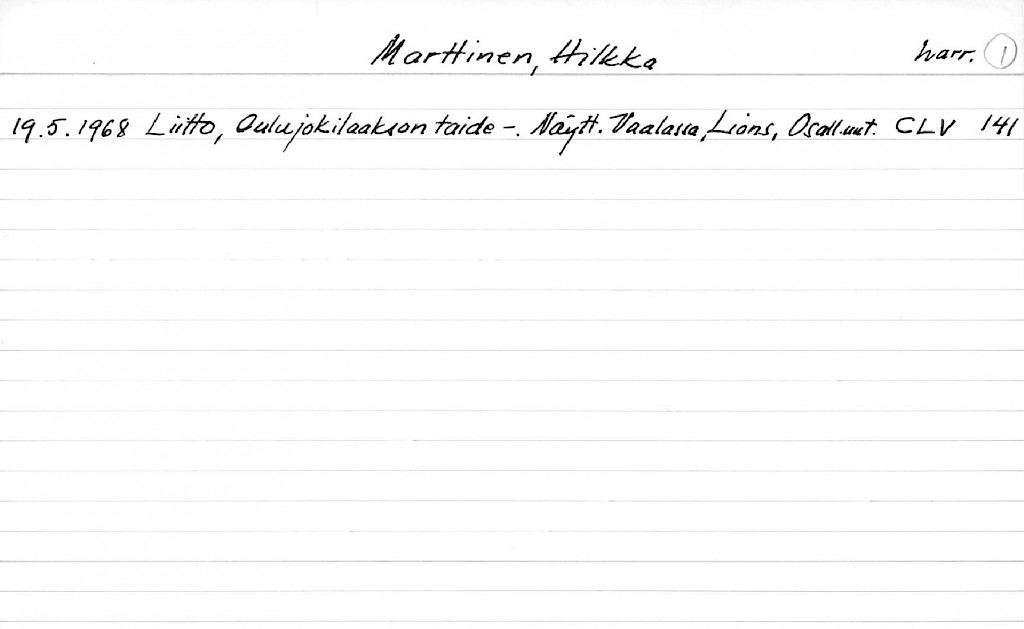 Marttinen, Hilkka harr. 1
19.5.1968 Liitto, Oulujokilaakson taide -. Näytt. Vaalassa, Lions, Osall.uut. CLV 141